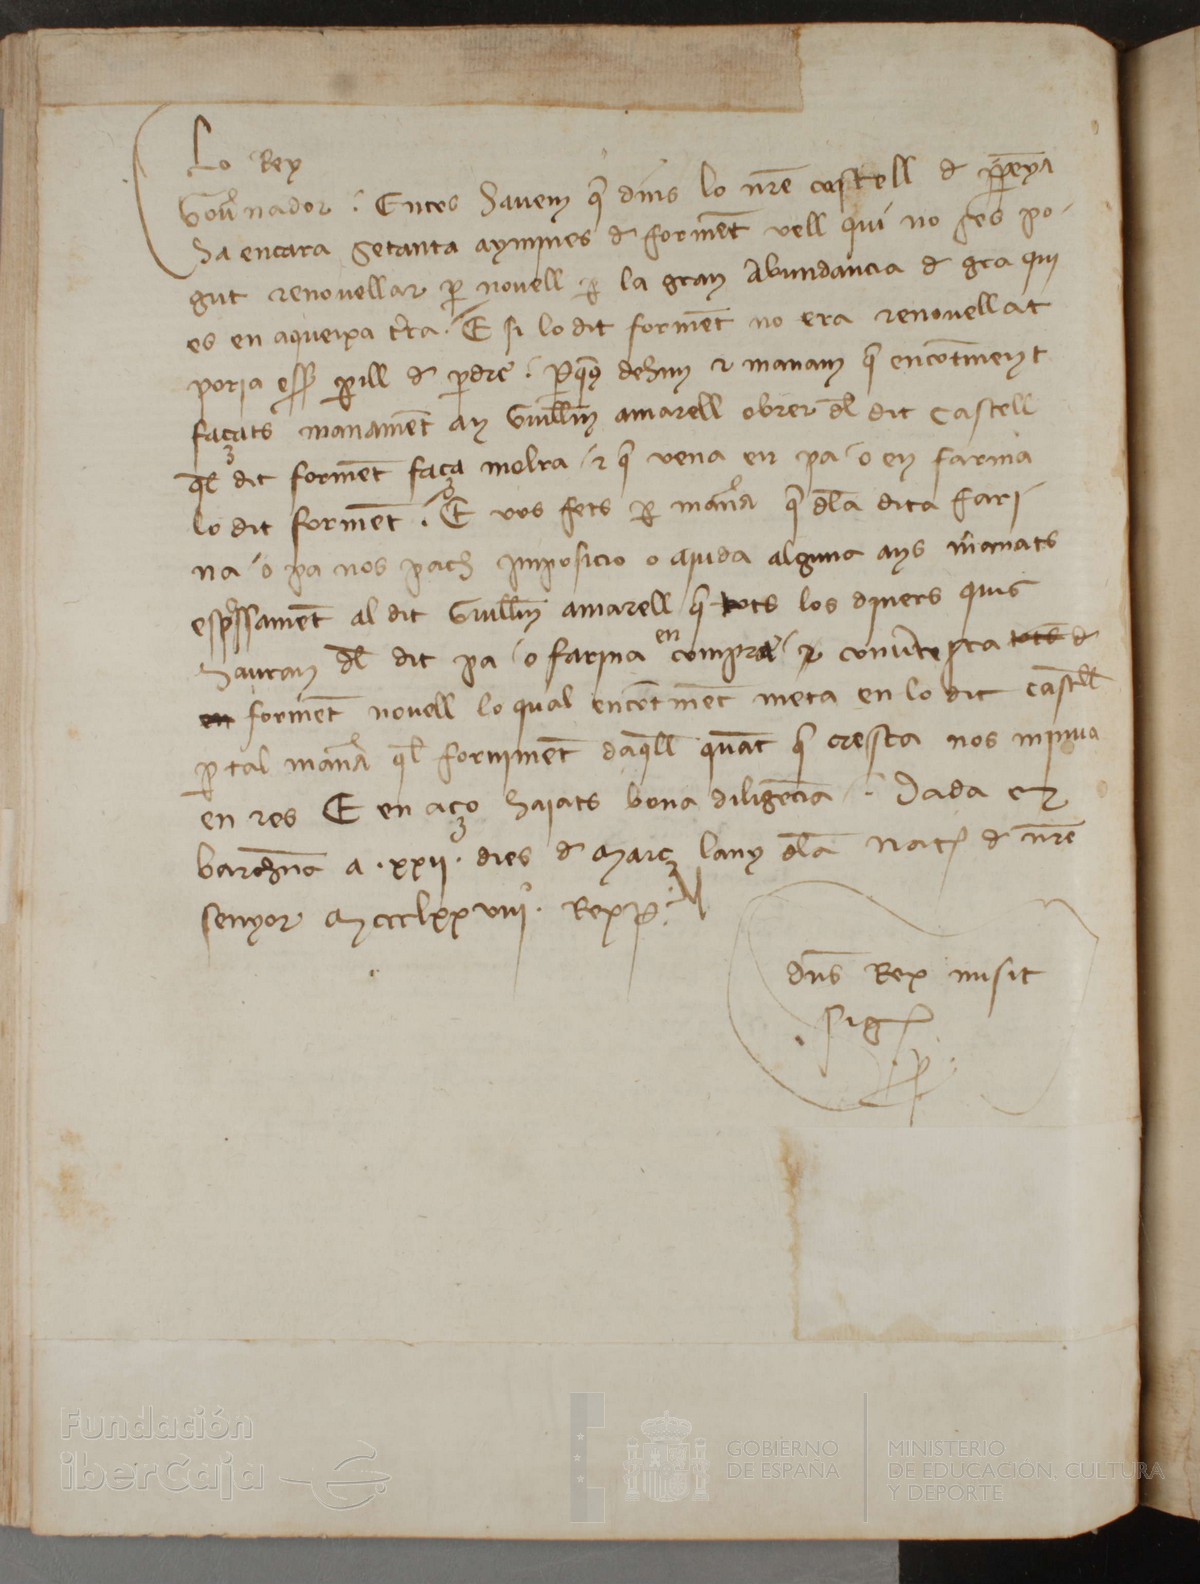 Lo Rey
Gou̅nador . Entes hauem q̅ dins lo nr̅e castell d p̅pẽya
ha encara setanta aymines d form̅et vell qui no ses po
gut renouellar p̱ nouell p̱ la gran abundancia d gra qui
es en aqueixa tr̅a . E si lo dit form̅et no era renouellat
poria ess̅ p̱ill d p̱dre . dehim z manam q̅ encõtinent
façats manam̅et an Guillm̅ amarell obrer dl̅ dit Castell
ql̅ dit form̅et faça molra z q̅ vena en pa o en farina
lo dit form̅et . E vos fets p̱ man̅a q̅ dl̅a dita fari
na o pa nos pach imposicio o ajuda alguna ans manats
esp̅ssam̅et al dit Guillm̅ amarell q̅ tots los diners quis
hauran dl̅ dit pa o farina en compre z conu̅tesca tots d
en form̅et nouell lo qual encõtin̅et meta en lo dit castll̅
p̱ tal man̅a ql̅ fornim̅et daq̅ll quãt q̅ cresca nos minua
en res E en aço haiats bona diligẽcia . Dada en
barchn̅a a .xxii. dies d març lany dl̅a Nat̅ d nr̅e
senyor Mccclxxviii . Rex P.
dn̅s Rex misit
sig̅